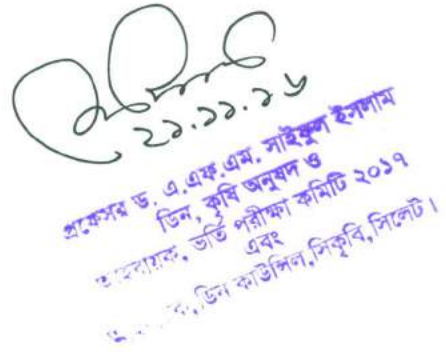 ২১.১১.১৬
প্রফেসর ড. এ.এফ.এম. সাইফুল ইসলাম
ডিন, কৃষি অনুষদ ও
আহবায়ক, ভর্তি পরীক্ষা কমিটি ২০১৭
এবং
ডিন কাউন্সিল,সিকৃবি,সিলেট।